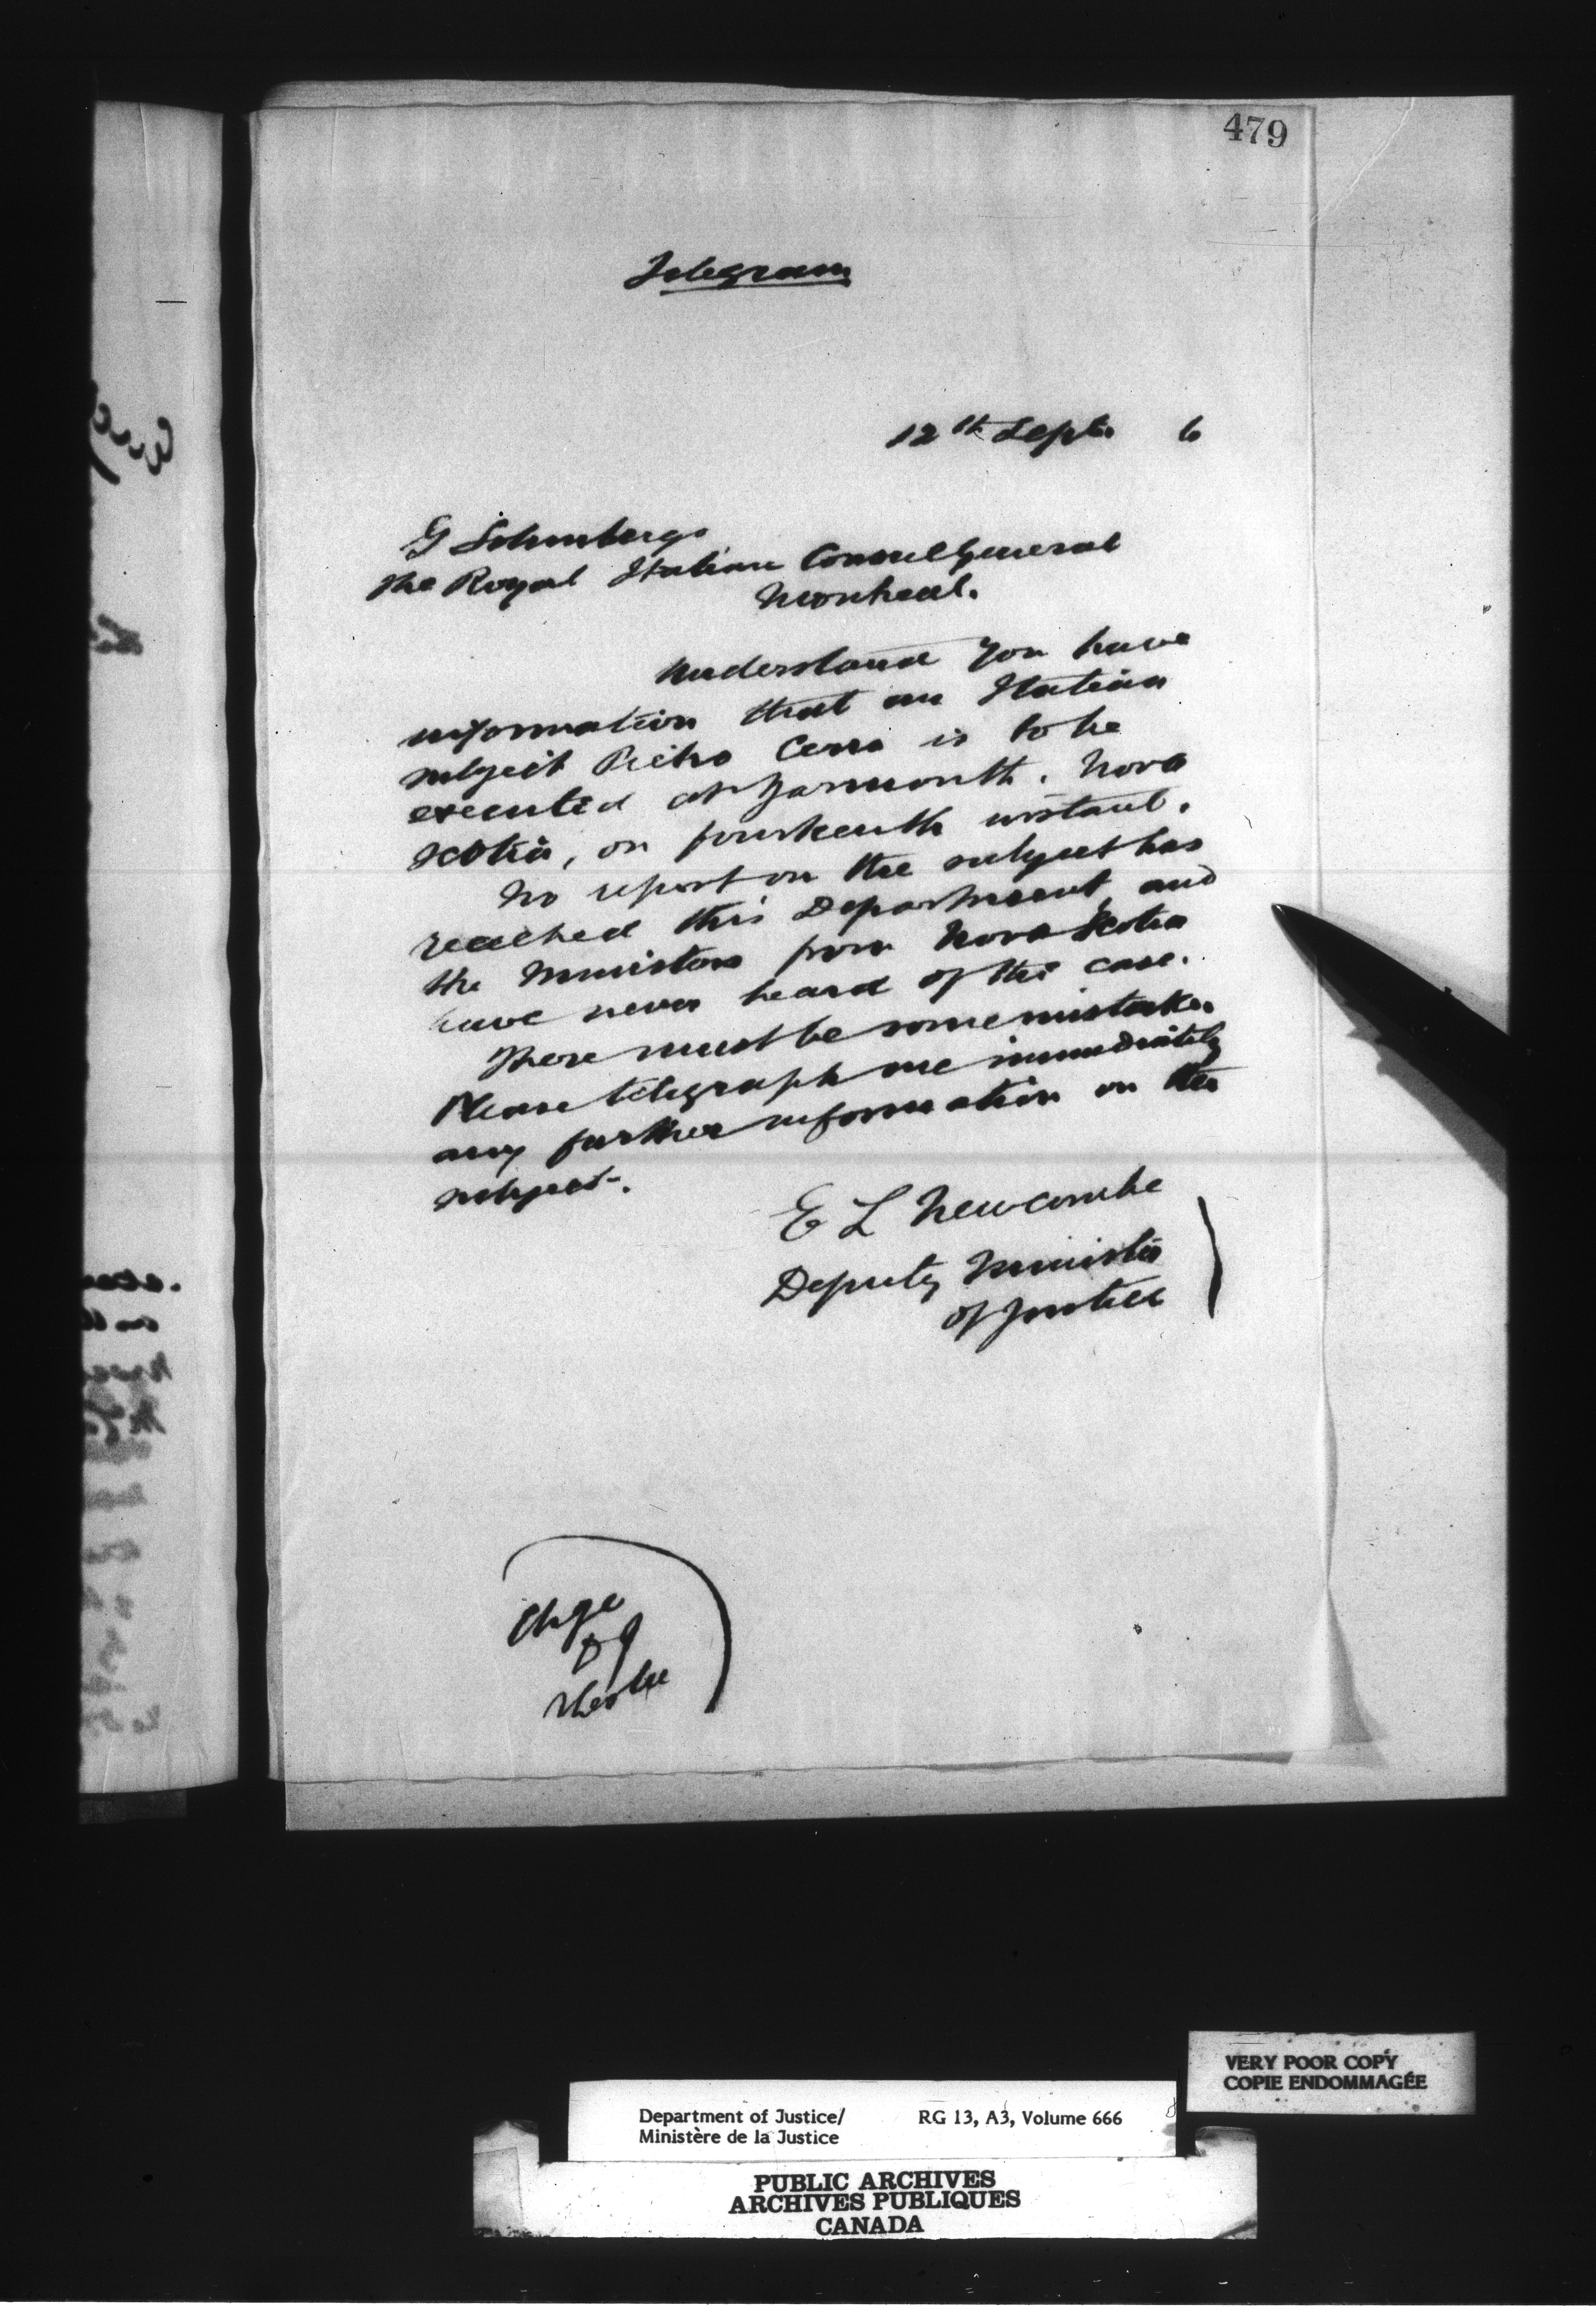 479
Telegram
12th Sept. 6
G Solimbergo
The Royal Italian Consul General
Montreal.
Understand you have
information that an Italian
subject Pietro Cerra is to be
executed at Yarmouth, Nova
Scotia, on fourteenth instant.
No report on the subject has
reached this Department, and
the Ministers from Nova Scotia
have never heard of the case.
There must be some mistake.
Please telegraph me immediately
any further information on the
subject.
E L Newcombe
Deputy Minister
of Justice
Chge
DJ
VERY POOR COPY
COPIE ENDOMMAGÉE
Department of Justice/ RG 13, A3, Volume 666
Ministère de la Justice
PUBLIC ARCHIVES
ARCHIVES PUBLIQUES
CANADA